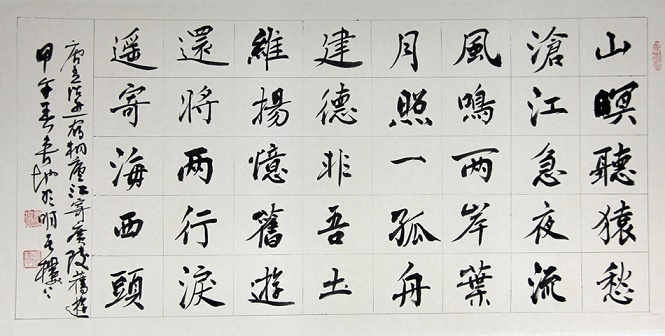 山暝聽猿愁
滄江急夜流
風鳴两岸葉
月照一孤舟
建德非吾土
維揚憶舊遊
還將两行淚
遥寄海西頭
唐孟浩然宿桐廬江寄廣陵舊遊
甲午春於明樓